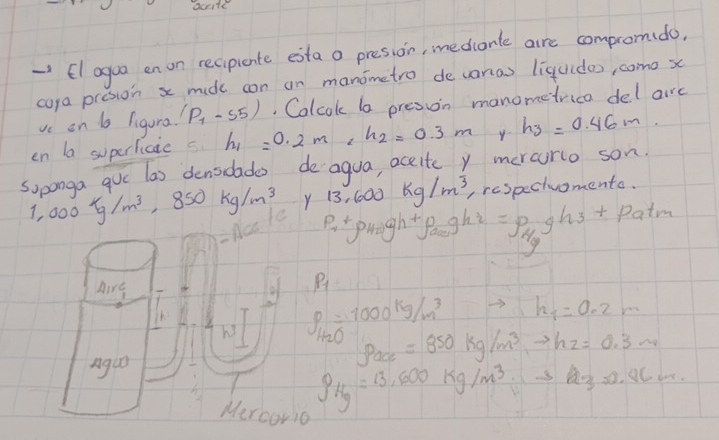 aceite
→ El agua en un recipiente esta a presión, mediante aire comprimido,
cuya presión se mide con un manómetro de varios líquidos, como se
ve en la figura (P1 - 55). Calcule la presión manometrica del aire
en la superficie h1 = 0.2 m , h2 = 0.3 m y h3 = 0.46 m.
Suponga que las densidades de agua, aceite y mercurio son.
1,000 Kg/m³, 850 Kg/m³ y 13,600 Kg/m³, respectivamente.
P1 + ρH2O gh + ρace gh2 = ρHg gh3 + Patm
Aceite
Aire
Agua
h3
Mercurio
P1
ρH2O = 1000 Kg/m³ → h1 = 0.2 m
ρace = 850 Kg/m³ → h2 = 0.3 m
ρHg = 13,600 Kg/m³ → h3 = 0.46 m.